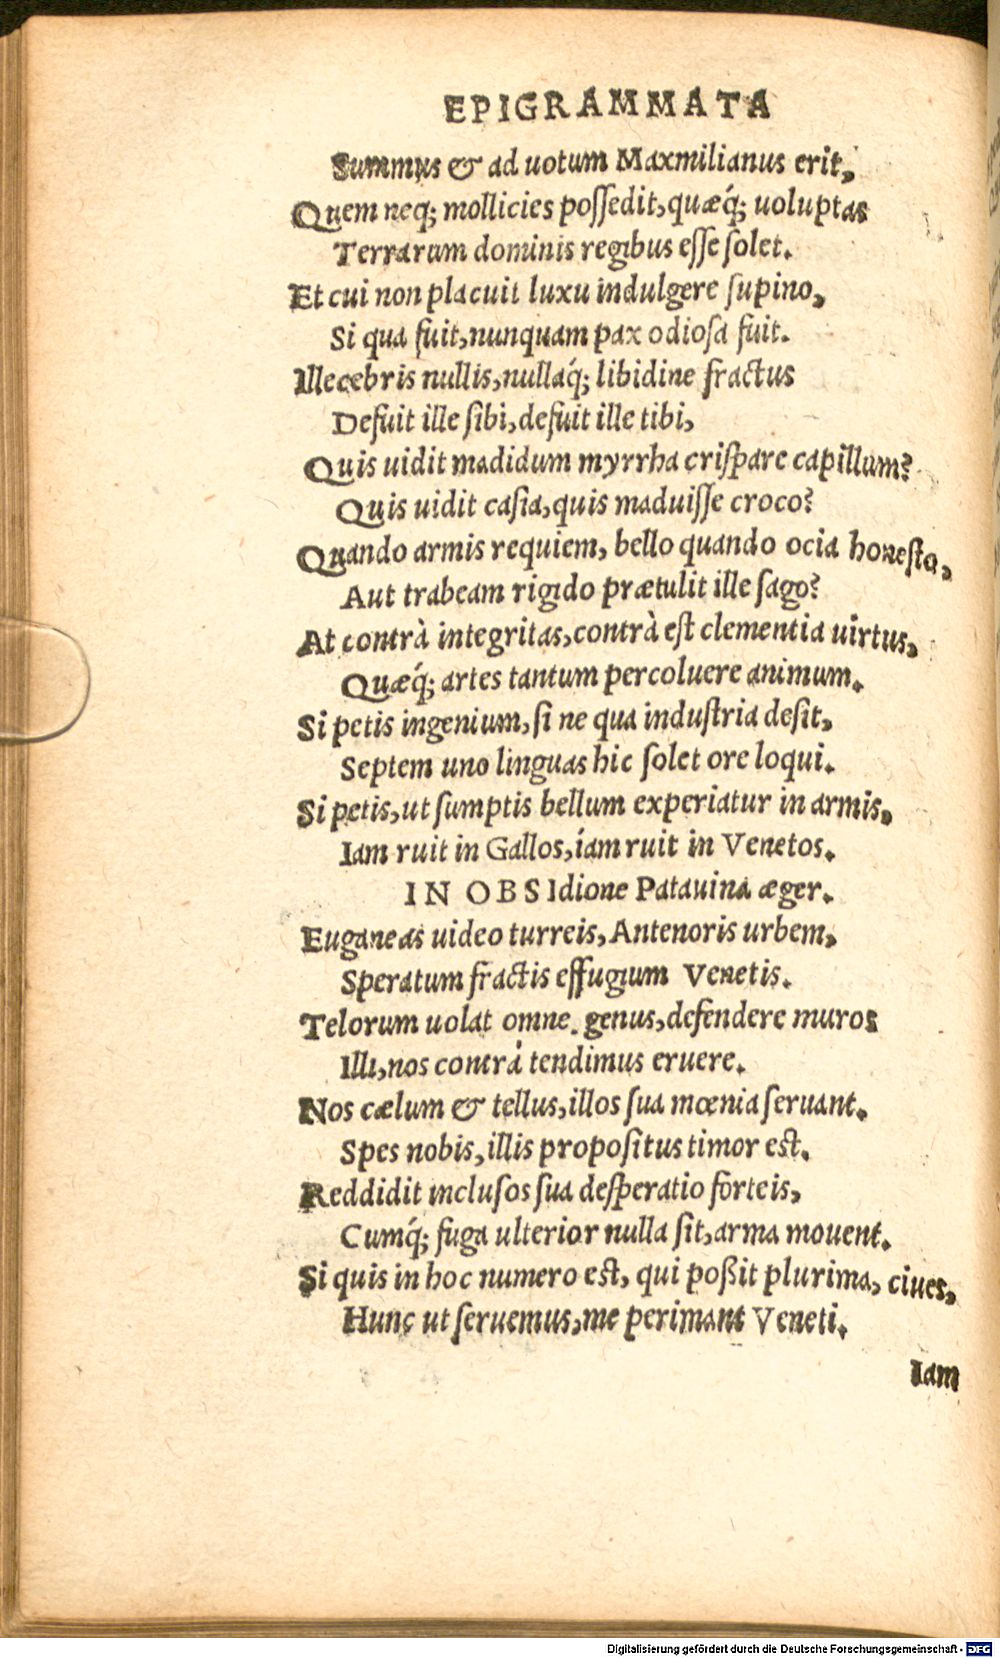 EPIGRAMMATA
Summus & ad uotum Maxmilianus erit,
Quem neq; mollicies possedit, quæq́; uoluptas
Terrarum dominis regibus esse solet.
Et cui non placuit luxu indulgere supino,
Si qua fuit, nunquam pax odiosa fuit.
Illecebris nullis, nullaq́; libidine fractus
Defuit ille sibi, defuit ille tibi,
Quis uidit madidum myrrha crispare capillum?
Quis uidit casia, quis maduisse croco?
Quando armis requiem, bello quando ocia honesto,
Aut trabeam rigido prætulit ille sago?
At contrà integritas, contrà est clementia uirtus,
Quæq́; artes tantum percoluere animum.
Si petis ingenium, si ne qua industria desit,
Septem uno linguas hic solet ore loqui.
Si petis, ut sumptis bellum experiatur in armis,
Iam ruit in Gallos, iam ruit in Venetos.
IN OBSIdione Patauina æger.
Euganeas uideo turreis, Antenoris urbem,
Speratum fractis effugium Venetis.
Telorum uolat omne genus, defendere muros
Illi, nos contrà tendimus eruere.
Nos cælum & tellus, illos sua mœnia seruant.
Spes nobis, illis propositus timor est.
Reddidit inclusos sua desperatio forteis,
Cumq́; fuga ulterior nulla sit, arma mouent.
Si quis in hoc numero est, qui poßit plurima, ciues,
Hunc ut seruemus, me perimant Veneti.
Iam
Digitalisierung gefördert durch die Deutsche Forschungsgemeinschaft - DFG